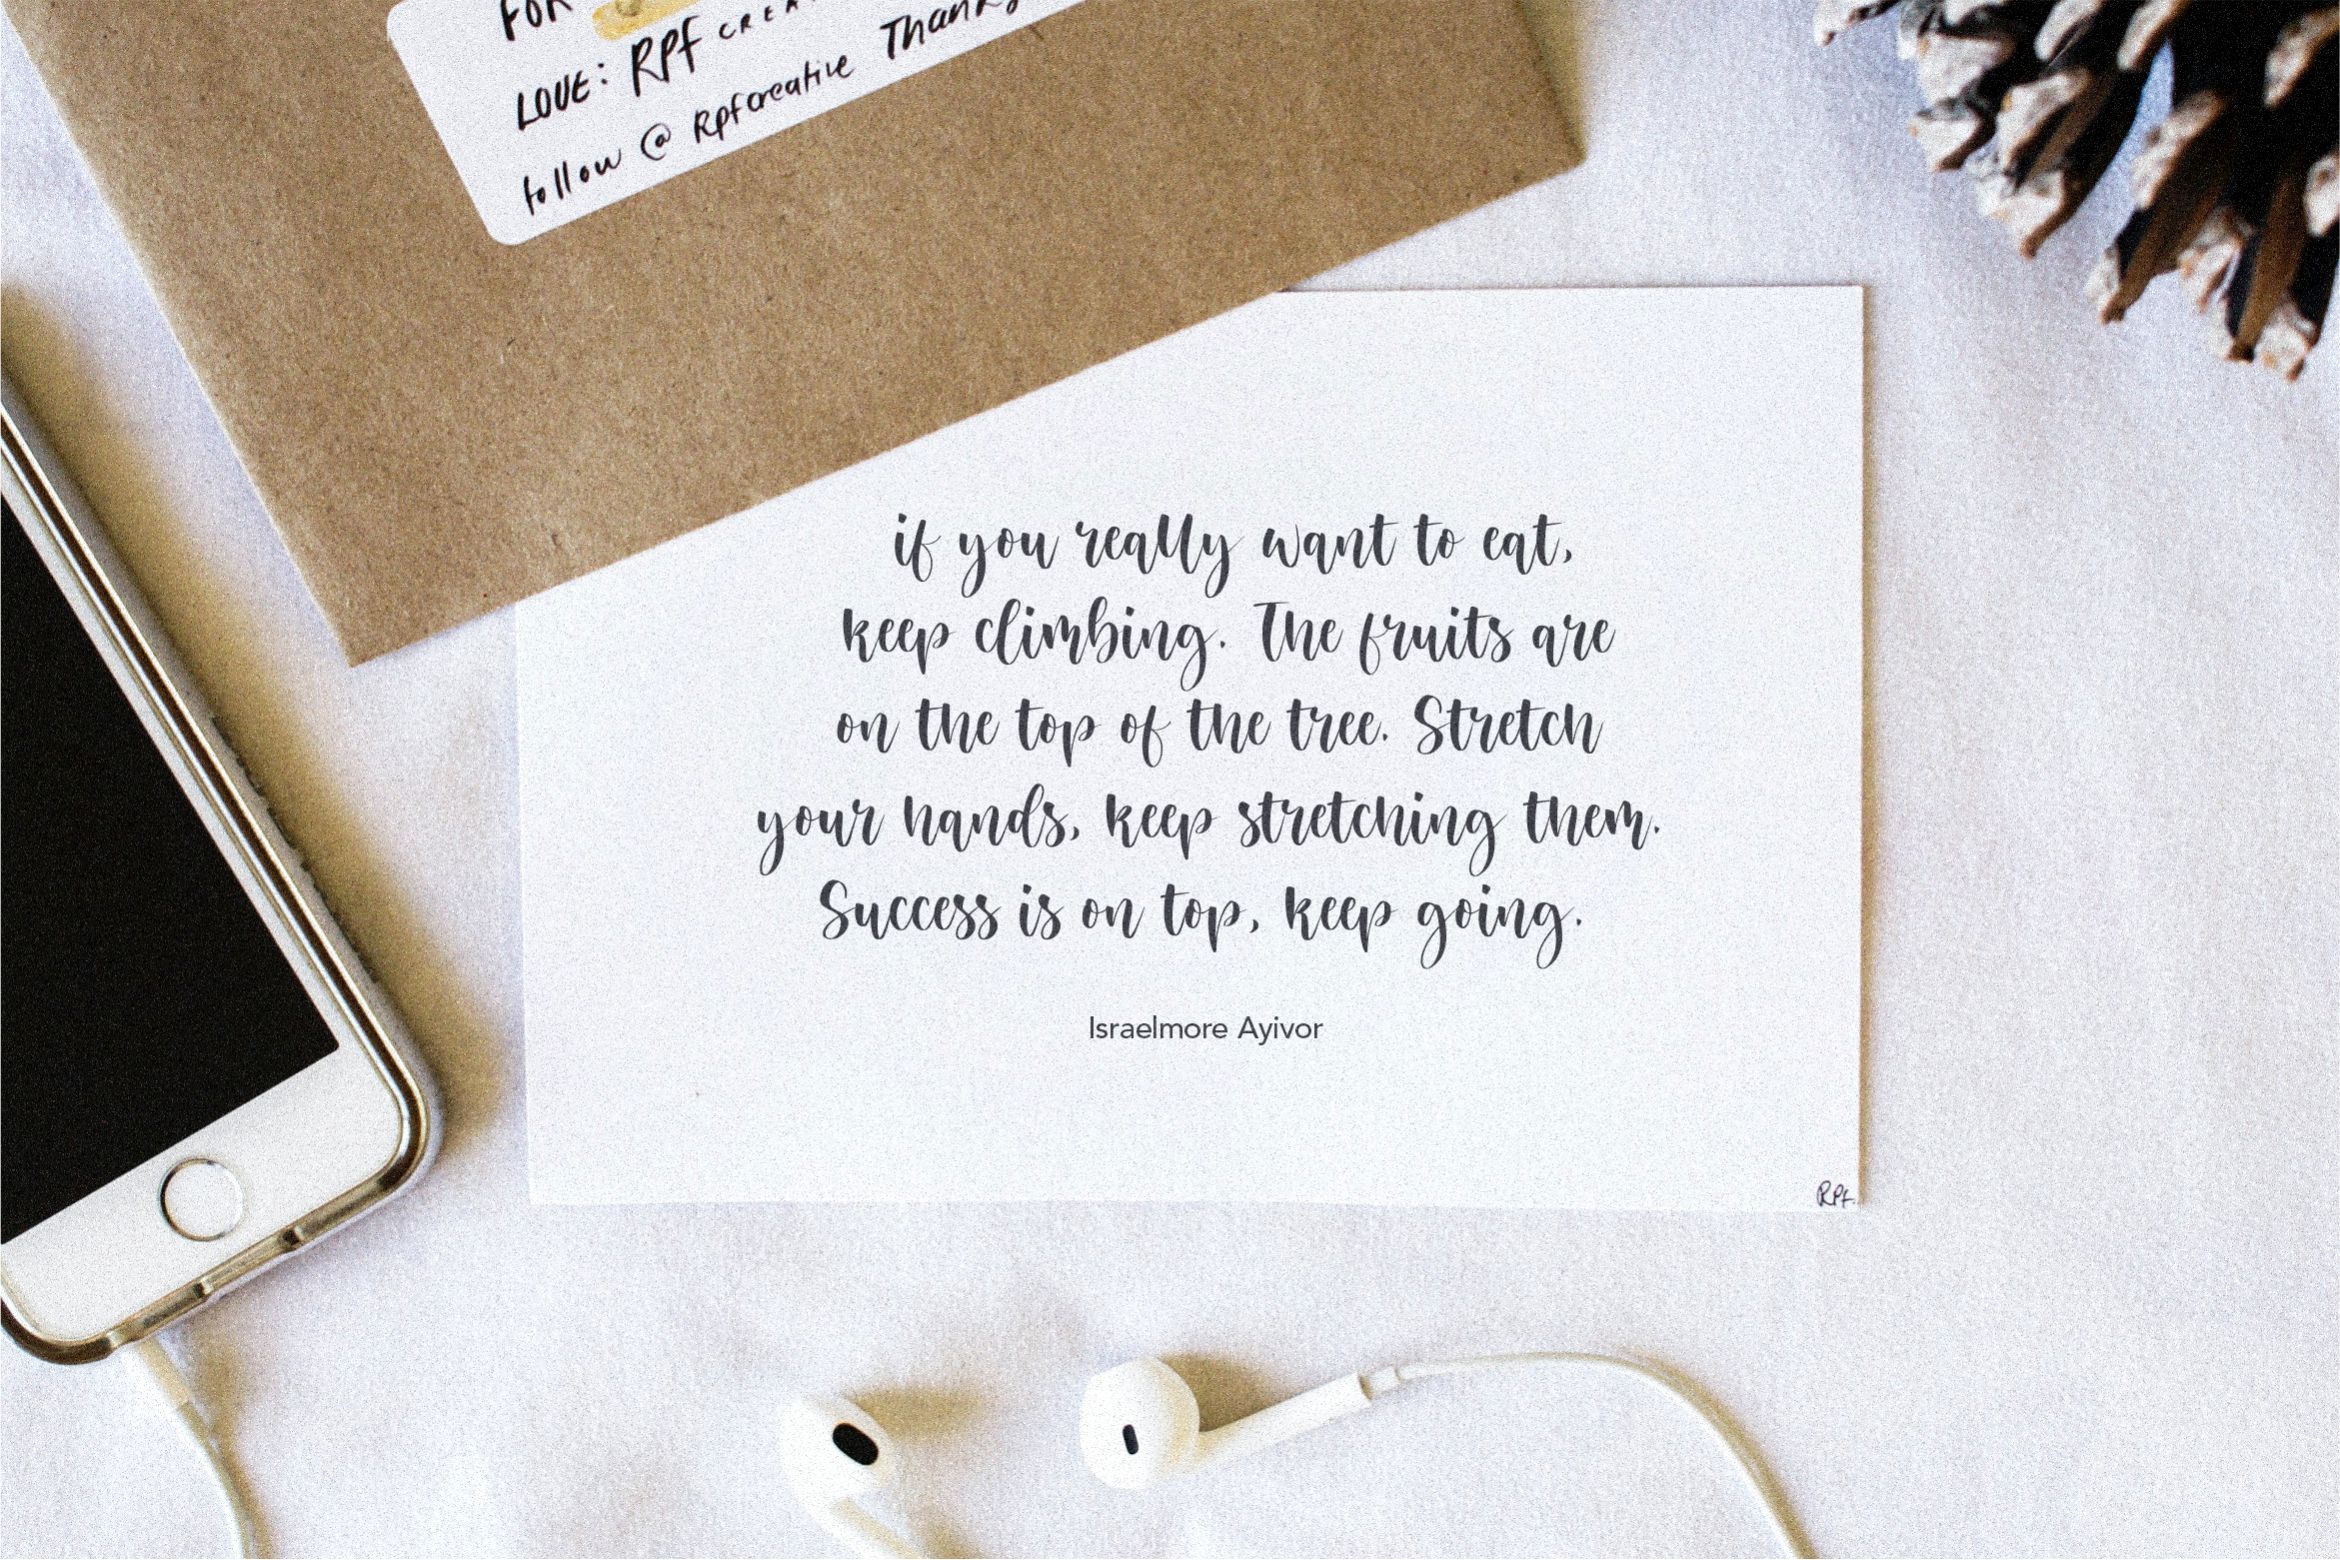 FOR
LOVE: RPF
follow @ Rpfcreative
if you really want to eat,
keep climbing. The fruits are
on the top of the tree. Stretch
your hands, keep stretching them.
Success is on top, keep going.
Israelmore Ayivor
RPF.